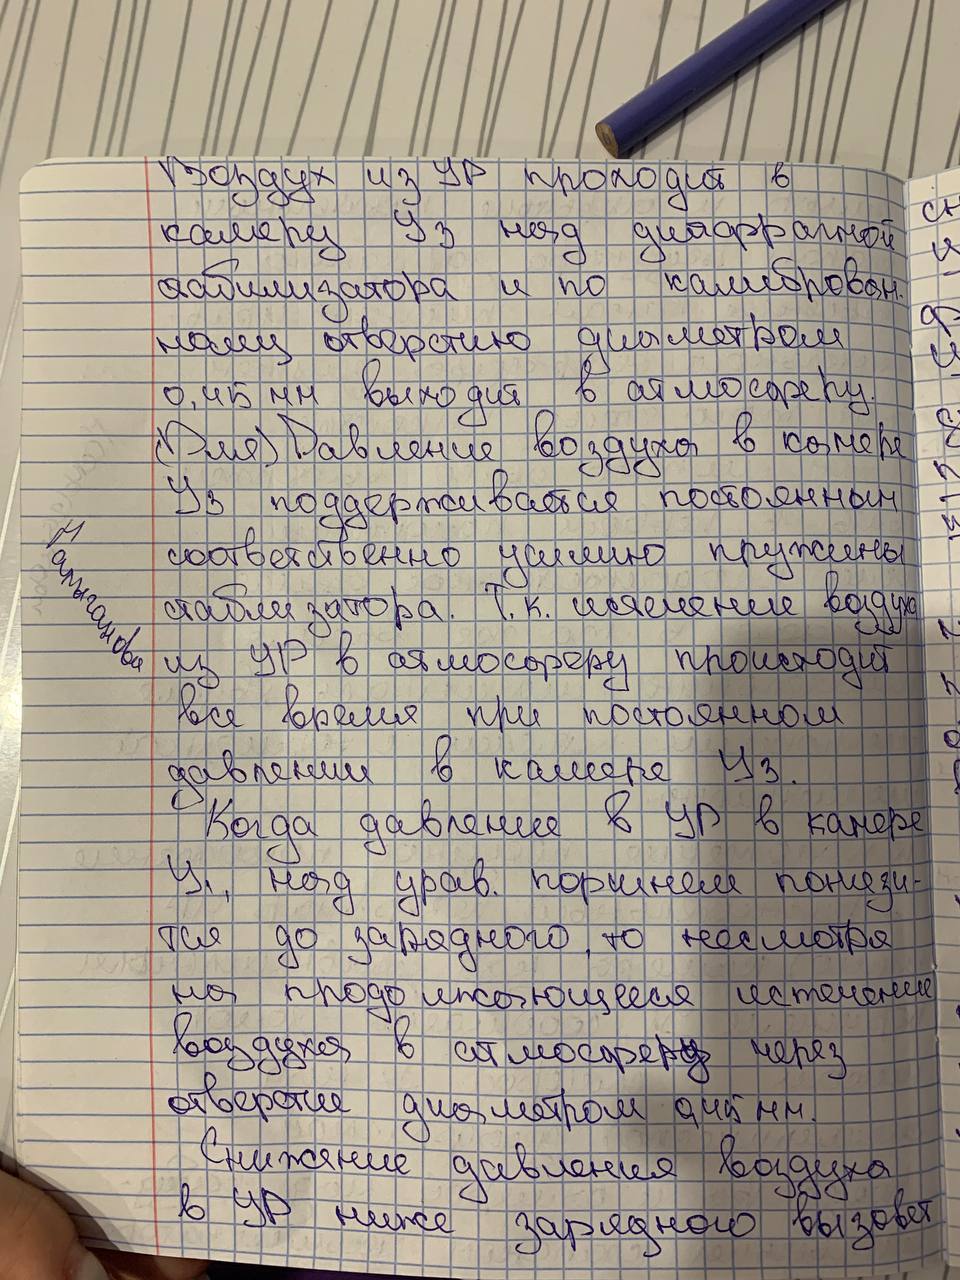 Воздух из УР проходит в
камеру У3 над диафрагмой
стабилизатора и по калиброван.
ному отверстию диаметром
0,45 мм выходит в атмосферу.
(Для) Давление воздуха в камере
У3 поддерживается постоянным
соответственно усилию пружины
стаблизатора. Т.к. истечение воздуха
из УР в атмосферу происходит
все время при постоянном
давлении в камере У3.
Когда давление в УР в камере
У1, над урав. поршнем понизи-
тся до зарядного, то несмотря
на продолжающееся истечение
воздуха в атмосферу через
отверстие диаметром 0,45 мм.
Снижение давления воздуха
в УР ниже зарядного вызовет